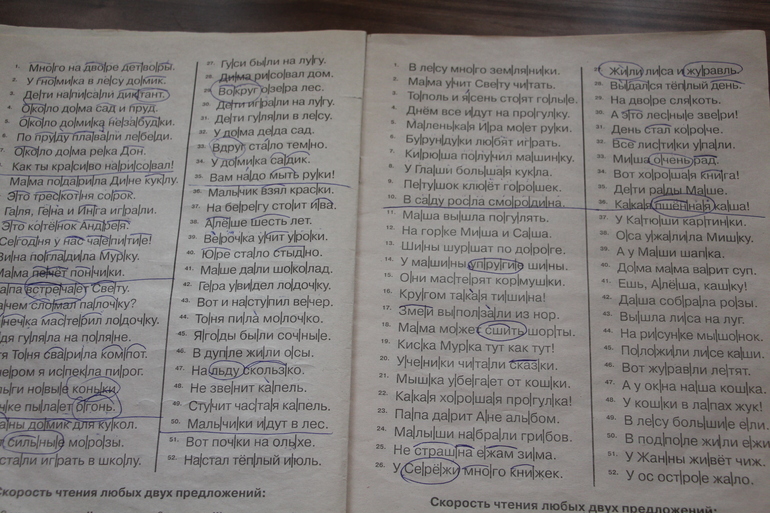 1. Мно|го на дво|ре дет|во|ры.
2. У гно|ми|ка в ле|су до|мик.
3. Де|ти на|пи|са|ли дик|тант.
4. О|ко|ло до|ма сад и пруд.
5. О|ко|ло до|ми|ка не|за|буд|ки.
6. По пру|ду пла|ва|ли ле|бе|ди.
7. О|ко|ло до|ма ре|ка Дон.
Как ты кра|си|во на|ри|со|вал!
Ма|ма по|да|ри|ла Ди|не кук|лу.
Э|то трес|кот|ня со|рок.
Га|ля, Ге|на и Ин|га иг|ра|ли.
Э|то ко|тё|нок Анд|ре|я.
Се|год|ня у нас ча|е|пи|ти|е!
по|гла|ди|ла Мур|ку.
пе|чёт пон|чи|ки.
встре|ча|ет Све|ту.
сло|мал па|лоч|ку?
мас|те|рил ло|доч|ку.
гу|ля|ла на по|ля|не.
То|ня сва|ри|ла ком|пот.
ис|пек|ла пи|рог.
но|вы|е конь|ки.
пы|ла|ет о|гонь.
до|мик для ку|кол.
силь|ны|е мо|ро|зы.
иг|рать в шко|лу.
Скорость чтения любых двух предложений:
27. Гу|си бы|ли на лу|гу.
28. Ди|ма ри|со|вал дом.
29. Во|круг о|зе|ра лес.
30. Де|ти иг|ра|ли на лу|гу.
31. Де|ти гу|ля|ли в ле|су.
32. У до|ма де|да сад.
33. Вдруг ста|ло тем|но.
34. У до|ми|ка са|дик.
35. Вам на|до мыть ру|ки!
36. Маль|чик взял крас|ки.
37. На бе|ре|гу сто|ит и|ва.
38. А|лё|ше шесть лет.
39. Ве|роч|ка у|чит у|ро|ки.
40. Ю|ре ста|ло стыд|но.
41. Ма|ше да|ли шо|ко|лад.
42. Ге|ра у|ви|дел ло|доч|ку.
43. Вот и на|сту|пил ве|чер.
44. То|ня пи|ла мо|лоч|ко.
45. Я|го|ды бы|ли соч|ны|е.
46. В дуп|ле жи|ли о|сы.
47. На льду сколь|з|ко.
48. Не зве|нит ка|пель.
49. Сту|чит час|та|я ка|пель.
50. Маль|чи|ки и|дут в лес.
51. Вот поч|ки на оль|хе.
52. На|стал тёп|лый и|юль.
1. В ле|су мно|го зем|ля|ни|ки.
2. Ма|ма у|чит Све|ту чи|тать.
3. То|поль и я|сень сто|ят го|лы|е.
4. Днём все и|дут на про|гул|ку.
5. Ма|лень|ка|я И|ра мо|ет ру|ки.
6. Бу|рун|ду|ки лю|бят иг|рать.
7. Ки|рю|ша по|лу|чил ма|шин|ку.
8. У Гла|ши боль|ша|я кук|ла.
9. Пе|ту|шок клю|ёт го|ро|шек.
10. В са|ду рос|ла смо|ро|ди|на.
11. Ма|ша вы|шла по|гу|лять.
12. На гор|ке Ми|ша и Са|ша.
13. Ши|ны шур|шат по до|ро|ге.
14. У ма|ши|ны уп|ру|ги|е ши|ны.
15. О|ни мас|те|рят кор|муш|ки.
16. Кру|гом та|ка|я ти|ши|на!
17. Зме|и вы|пол|за|ли из нор.
18. Ма|ма мо|жет сшить шор|ты.
19. Кис|ка Мур|ка тут как тут!
20. У|че|ни|ки чи|та|ли сказ|ки.
21. Мыш|ка у|бе|га|ет от кош|ки.
22. Ка|ка|я хо|ро|ша|я про|гул|ка!
23. Па|па да|рит А|не аль|бом.
24. Ма|лы|ши на|бра|ли гри|бов.
25. Не страш|на е|жам зи|ма.
26. У Се|рё|жи мно|го кни|жек.
Скорость чтения любых двух предложений:
27. Жи|ли ли|са и жу|равль.
28. Вы|дал|ся тёп|лый день.
29. На дво|ре сля|коть.
30. А э|то лес|ны|е зве|ри!
31. День стал ко|ро|че.
32. Все лис|ти|ки у|па|ли.
33. Ми|ша о|чень рад.
34. Вот хо|ро|ша|я кни|га!
35. Де|ти ра|ды Ма|ше.
36. Ка|ка|я пшён|на|я ка|ша!
37. У Ка|тю|ши кар|тин|ки.
38. О|са у|жа|ли|ла Миш|ку.
39. А у Ма|ши шап|ка.
40. До|ма ма|ма ва|рит суп.
41. Ешь, А|лё|ша, каш|ку!
42. Да|ша со|бра|ла ро|зы.
43. Вы|шла ли|са на луг.
44. На ри|сун|ке мы|шо|нок.
45. По|ло|жи|ли ли|се ка|ши.
46. Вот жу|рав|ли ле|тят.
47. А у ок|на на|ша кош|ка.
48. У кош|ки в ла|пах жук!
49. В ле|су боль|ши|е е|ли.
50. В под|по|ле жи|ли
51. У Жан|ны жи|вёт чиж.
52. У ос ост|ро|е жа|ло.